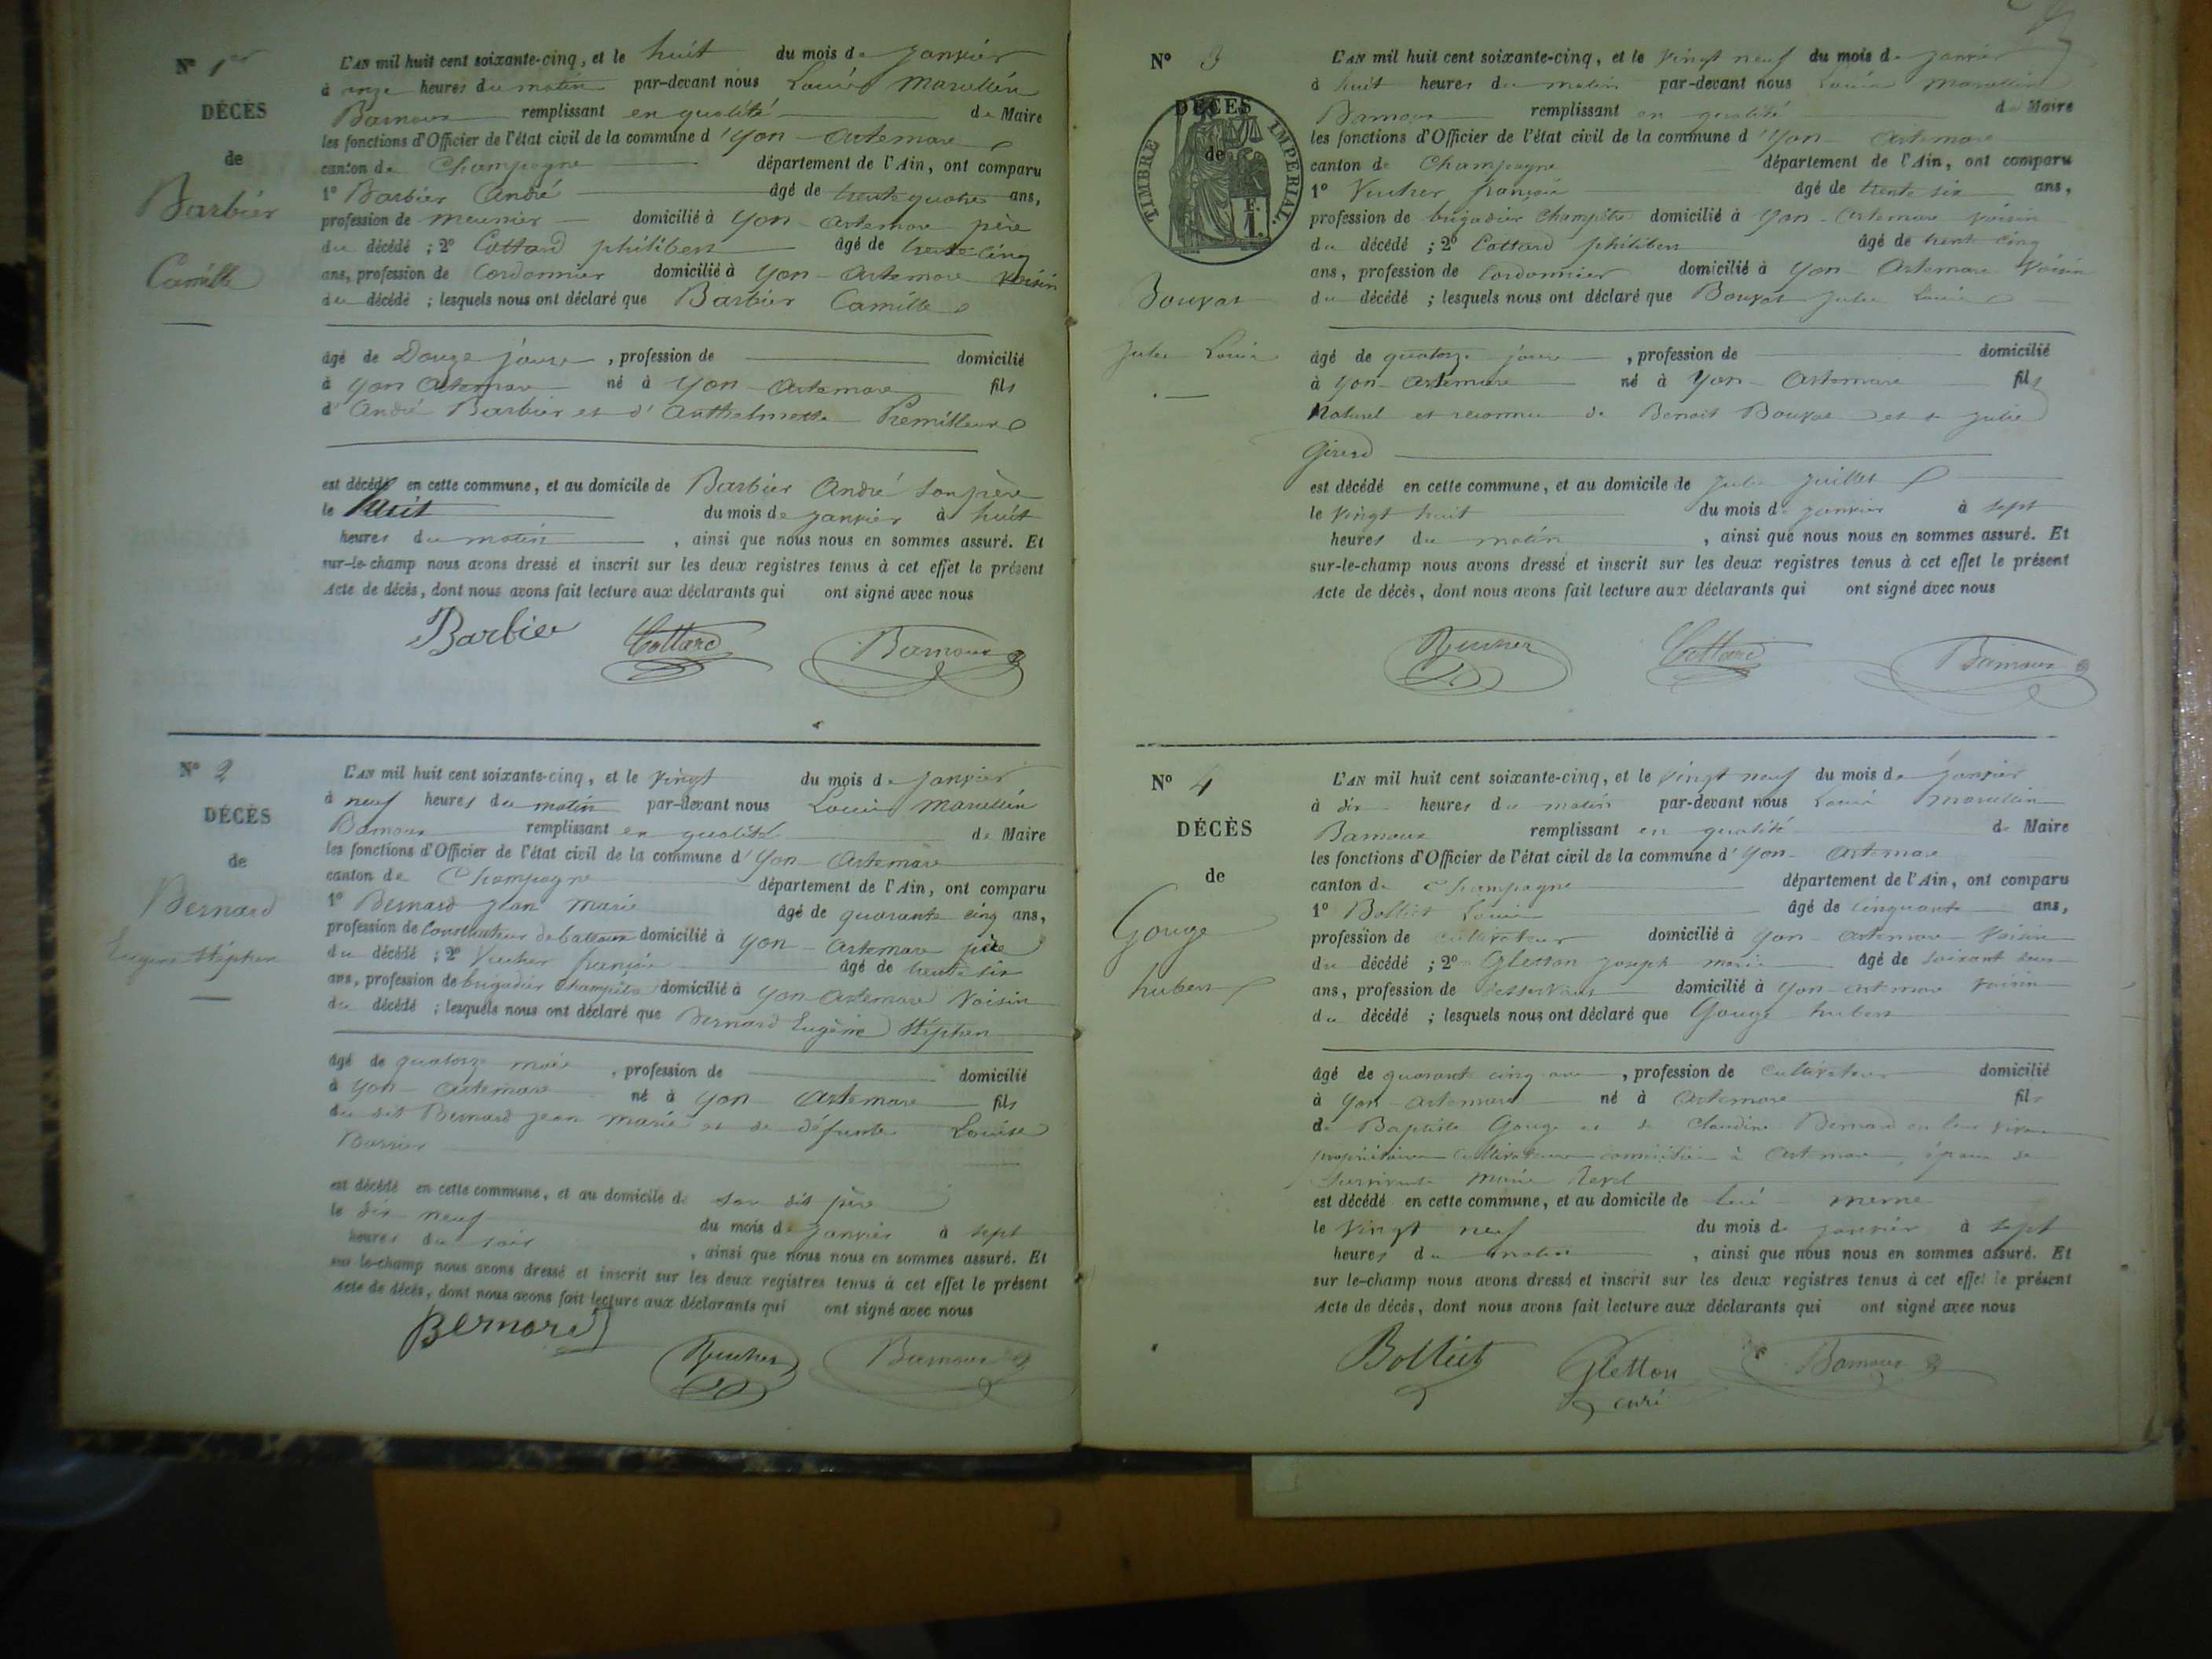 N° 1er
DÉCÈS
de
Barbier
Camille
L'AN mil huit cent soixante-cinq, et le huit du mois de janvier
à onze heures du matin par-devant nous Louis Marcellin
Bamoux remplissant en qualité de Maire
les fonctions d'Officier de l'état civil de la commune d'Yon-Artemare
canton de Champagne département de l'Ain, ont comparu
1° Barbier André âgé de trente quatre ans,
profession de meunier domicilié à Yon-Artemare père
du décédé ; 2° Cottard philibert âgé de trente cinq
ans, profession de Cordonnier domicilié à Yon-Artemare voisin
du décédé ; lesquels nous ont déclaré que Barbier Camille
âgé de Douze jours, profession de domicilié
à Yon Artemare né à Yon-Artemare fils
d'André Barbier et d'Anthelmette Premilleux
est décédé en cette commune, et au domicile de Barbier André son père
le huit du mois de janvier à huit
heures du matin, ainsi que nous nous en sommes assuré. Et
sur-le-champ nous avons dressé et inscrit sur les deux registres tenus à cet effet le présent
Acte de décès, dont nous avons fait lecture aux déclarants qui ont signé avec nous
Barbier Cottard Bamoux
N° 2
DÉCÈS
de
Bernard
Eugène Stéphen
L'AN mil huit cent soixante-cinq, et le vingt du mois de janvier
à neuf heures du matin par-devant nous Louis Marcellin
Bamoux remplissant en qualité de Maire
les fonctions d'Officier de l'état civil de la commune d'Yon-Artemare
canton de Champagne département de l'Ain, ont comparu
1° Bernard jean marie âgé de quarante cinq ans,
profession de Constructeur de bateaux domicilié à Yon-Artemare père
du décédé ; 2° Vucher françois âgé de trente six
ans, profession de brigadier champêtre domicilié à Yon-Artemare Voisin
du décédé ; lesquels nous ont déclaré que Bernard Eugène Stéphen
âgé de quatorze mois, profession de domicilié
à Yon-Artemare né à Yon-Artemare fils
du dit Bernard jean marie et de défunte Louise
est décédé en cette commune, et au domicile de son dit père
le dix neuf du mois de janvier à sept
heures du soir, ainsi que nous nous en sommes assuré. Et
sur-le-champ nous avons dressé et inscrit sur les deux registres tenus à cet effet le présent
Acte de décès, dont nous avons fait lecture aux déclarants qui ont signé avec nous
Bernard Vucher Bamoux
N° 3
TIMBRE IMPÉRIAL.
DÉCÈS
de
F. 1.
Bouvat
Jules Louis
L'AN mil huit cent soixante-cinq, et le vingt neuf du mois de janvier
à huit heures du matin par-devant nous Louis Marcellin
Bamoux remplissant en qualité de Maire
les fonctions d'Officier de l'état civil de la commune d'Yon-Artemare
canton de Champagne département de l'Ain, ont comparu
1° Vucher françois âgé de trente six ans,
profession de brigadier champêtre domicilié à Yon-Artemare voisin
du décédé ; 2° Cottard philibert âgé de trente cinq
ans, profession de Cordonnier domicilié à Yon-Artemare Voisin
du décédé ; lesquels nous ont déclaré que Bouvat Jules Louis
âgé de quatorze jours, profession de domicilié
à Yon-Artemare né à Yon-Artemare fils
Naturel et reconnu de Benoit Bouvat et de Julie
est décédé en cette commune, et au domicile de
le vingt huit du mois de janvier à sept
heures du matin, ainsi que nous nous en sommes assuré. Et
sur-le-champ nous avons dressé et inscrit sur les deux registres tenus à cet effet le présent
Acte de décès, dont nous avons fait lecture aux déclarants qui ont signé avec nous
Vucher Cottard Bamoux
N° 4
DÉCÈS
de
Gouge
hubert
L'AN mil huit cent soixante-cinq, et le vingt neuf du mois de janvier
à dix heures du matin par-devant nous Louis Marcellin
Bamoux remplissant en qualité de Maire
les fonctions d'Officier de l'état civil de la commune d'Yon-Artemare
canton de Champagne département de l'Ain, ont comparu
1° Bolliet Louis âgé de cinquante ans,
profession de cultivateur domicilié à Yon-Artemare Voisin
du décédé ; 2° Gletton joseph marie âgé de
ans, profession de desservant domicilié à Yon-Artemare voisin
du décédé ; lesquels nous ont déclaré que Gouge hubert
âgé de quarante cinq ans, profession de Cultivateur domicilié
à Yon-Artemare né à Artemare fils
de Baptiste Gouge et de Claudine Bernard en leur vivant
propriétaires cultivateurs domiciliés à Artemare, époux de
survivante marie
est décédé en cette commune, et au domicile de lui même
le vingt neuf du mois de janvier à sept
heures du matin, ainsi que nous nous en sommes assuré. Et
sur-le-champ nous avons dressé et inscrit sur les deux registres tenus à cet effet le présent
Acte de décès, dont nous avons fait lecture aux déclarants qui ont signé avec nous
Bolliet Gletton Bamoux
curé